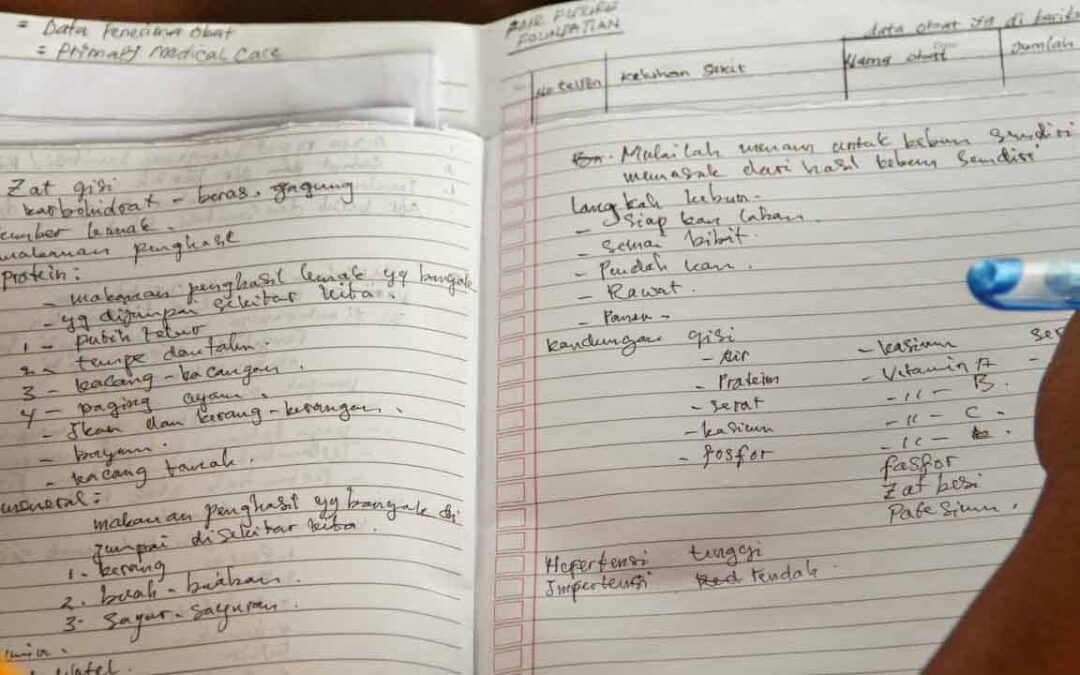 = Data Penerima Obat
= Primary Medical Care
Zat gisi
karbohidrat - beras. gagung
sumber lemak.
makanan penghasil
protein:
- makanan penghasil lemak yg bangak
- yg dijumpai sekitar kita.
1 - putih telur
2 - tempe dan tahu.
3 - kacang - kacangan.
4 - daging ayam.
- Ikan dan kerang - kerangan.
- bayam.
- kacang tanah.
meneral:
makanan penghasil yg bangak di
jumpai disekitar kita.
1. kerang
2. buah - buahan.
3. Sayur - sayuran.
FUTURE
FOUNDATION
data obat yg di
keluhan sakit
Nama obat
Jumlah
Mulailah menam untuk kebun sendiri
memasak dari hasil kebun sendiri
langkah kebun -
- Siap kan lahan.
- Semai bibit.
- Pindah kan.
- Rawat.
- Panen -
kandungan gisi
- Air
- Protein
- serat
- kasium
- fosfor
- kasium
- Vitamin A
- " - B.
- " - C.
- " -
fosfor
Zat besi
Patesium.
Hepertensi tinggi
Impertensi rendah.